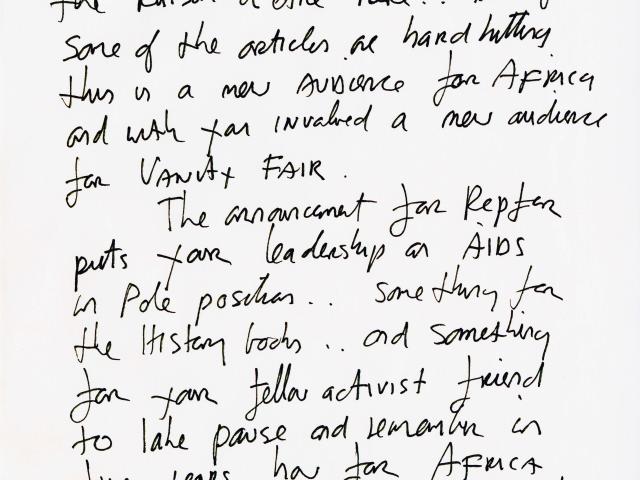 the
some of the articles are hard hitting
this is a new AUDIENCE for AFRICA
and with your involved a new audience
for VANITY FAIR.
The announcement for Pepfar
puts your leadership on AIDS
in Pole position.. something for
the History books .. and something
for your fellow activist friend
to take pause and remember in
years how far AFRICA